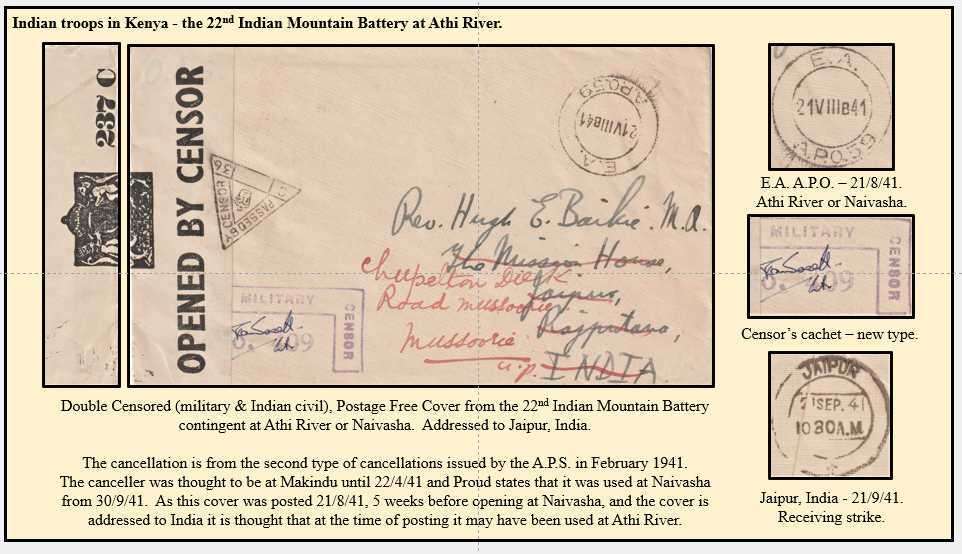 Indian troops in Kenya - the 22nd Indian Mountain Battery at Athi River.
237 C
OPENED BY CENSOR
PASSED BY
CENSOR 36
E.A.
21VIIIB41
A.P.O.59
Rev. Hugh E. Baikie. M.A.
The Mission House,
Jaipur,
Rajputana,
INDIA.
Road Mussoorie
Mussoorie
U.P.
MILITARY
CENSOR
09
E.A.
21VIIIB41
A.P.O.59
E.A. A.P.O. – 21/8/41.
Athi River or Naivasha.
MILITARY
CENSOR
09
Censor’s cachet – new type.
JAIPUR
21SEP. 41
10 30A.M
Jaipur, India - 21/9/41.
Receiving strike.
Double Censored (military & Indian civil), Postage Free Cover from the 22nd Indian Mountain Battery
contingent at Athi River or Naivasha. Addressed to Jaipur, India.
The cancellation is from the second type of cancellations issued by the A.P.S. in February 1941.
The canceller was thought to be at Makindu until 22/4/41 and Proud states that it was used at Naivasha
from 30/9/41. As this cover was posted 21/8/41, 5 weeks before opening at Naivasha, and the cover is
addressed to India it is thought that at the time of posting it may have been used at Athi River.